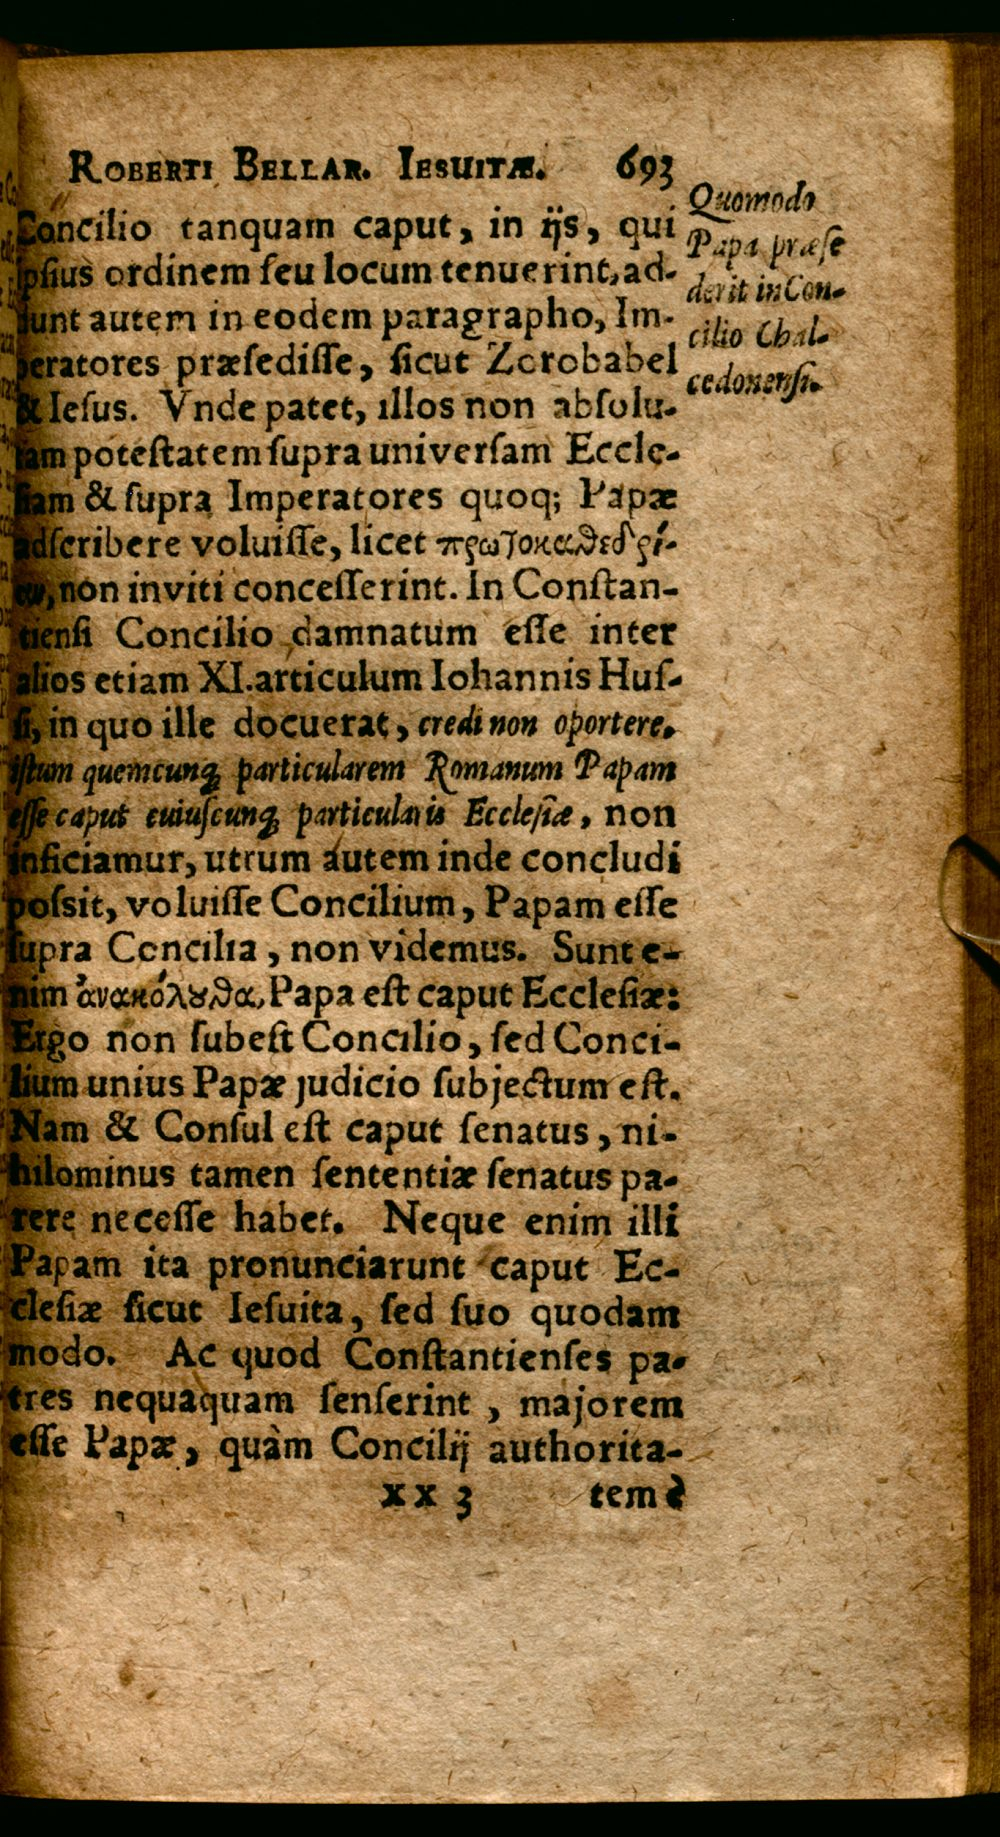 ROBERTI BELLAR. IESUITÆ. 693
Concilio tanquam caput, in ijs, qui
ipſius ordinem ſeu locum tenuerint, ad-
dunt autem in eodem paragrapho, Im-
peratores præſediſſe, ſicut Zorobabel
& Ieſus. Vnde patet, illos non abſolu-
tam poteſtatem ſupra univerſam Eccle-
ſiam & ſupra Imperatores quoq; Papæ
adſcribere voluiſſe, licet πρωτοκαθεδρί-
αν, non inviti conceſſerint. In Conſtan-
tienſi Concilio damnatum eſſe inter
alios etiam XI. articulum Iohannis Huſ-
ſi, in quo ille docuerat, credi non oportere.
iſtum quemcunq; particularem Romanum Papam
eſſe caput cuiuſcunq; particularis Eccleſiæ, non
inficiamur, utrum autem inde concludi
poſsit, voluiſſe Concilium, Papam eſſe
ſupra Concilia, non videmus. Sunt e-
nim ἀνακόλουθα, Papa eſt caput Eccleſiæ:
Ergo non ſubeſt Concilio, ſed Conci-
lium unius Papæ judicio ſubjectum eſt.
Nam & Conſul eſt caput ſenatus, ni-
hilominus tamen ſententiæ ſenatus pa-
rere neceſſe habet. Neque enim illi
Papam ita pronunciarunt caput Ec-
cleſiæ ſicut Ieſuita, ſed ſuo quodam
modo. Ac quod Conſtantienſes pa-
tres nequaquam ſenſerint, majorem
eſſe Papæ, quàm Concilij authorita-
xx 3 tem
Quomodo
Papa præſe
derit in Con-
cilio Chal-
cedonenſi.